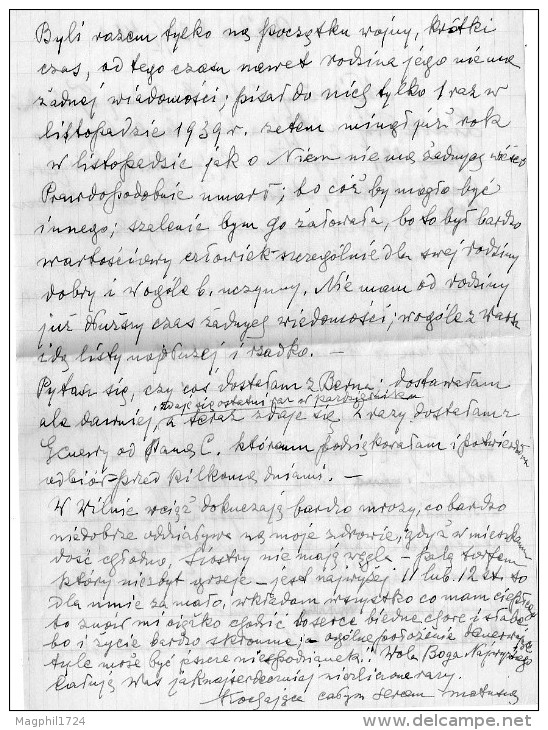 Byli razem tylko na początku wojny, krótki
czas, od tego czasu nawet rodzina jego nie ma
żadnej wiadomości; pisał do nich tylko 1 raz w
listopadzie 1939 r. zatem minął już rok
w listopadzie jak o Niem nie ma żadnych
Prawdopodobnie umarł; bo cóż by mogło być
innego; szalenie bym go żałowała, bo to był bardzo
wartościowy człowiek szczególnie dla swej rodziny
dobry i wogóle b. uczynny. Nie mam od rodziny
już dłuższy czas żadnych wiadomości; wogóle z Warsz
idą listy najdłużej i rzadko. —
Pytasz się, czy coś dostałam z Berna; dostawałam
zdaje się ostatni raz w październiku
ale dawniej, a teraz zdaje się 2 razy dostałam z
Genewy od Pana C. któremu podziękowałam i potwierdziłam
odbiór przed kilkoma dniami. —
W Wilnie wciąż dokuczają bardzo mrozy, co bardzo
niedobrze oddziaływa na moje zdrowie, gdyż w mieszkaniu
dość chłodno, Siostry nie mają węgla — palą torfem
który niezbyt grzeje — jest najwyżej 11 lub 12 st. to
dla mnie za mało, wkładam wszystko co mam ciepłego
to znów mi ciężko chodzić bo serce biedne chore i słabe
bo i życie bardzo skromne; a ogólne położenie denerwujące
tyle może być jeszcze niespodzianek. Wola Boga Najwyższego
Całuję Was jaknajserdeczniej niezliczone razy.
Kochająca całym sercem matusia
Magphil1724
delcampe.net